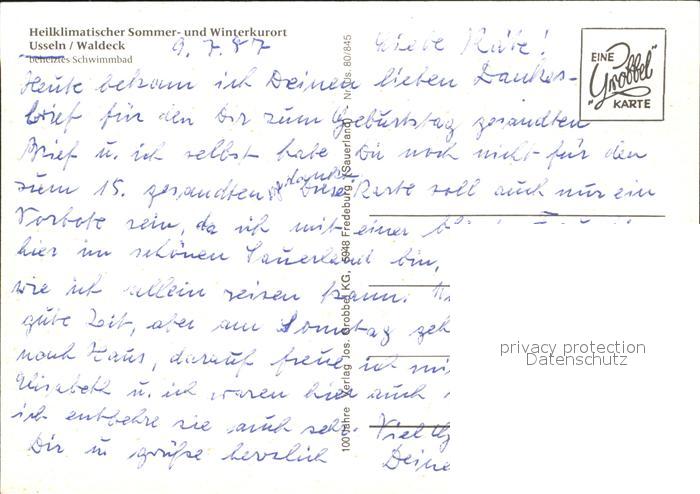 Heilklimatischer Sommer- und Winterkurort
Usseln / Waldeck
beheiztes Schwimmbad
9. 7. 87 Liebe Käte!
Heute bekam ich Deinen lieben Dankes-
brief für den Dir zum Geburtstag gesandten
Brief u. ich selbst habe Dir noch nicht für den
zum 15. gesandten gedankt. Diese Karte soll auch nur ein
Vorbote sein, da ich mit einer
hier im schönen Sauerland bin,
wie ich allein reisen kann.
gute Zeit, aber am Sonntag geh
nach Haus, darauf freue ich mi
Elisabeth u. ich waren hier auch
ich entbehre sie auch sehr. Viel
Dir u grüße herzlich Deine
100 Jahre Verlag Jos. Grobbel KG, 5948 Fredeburg (Sauerland) Nr. Us. 80/845
EINE
"Grobbel"
KARTE
privacy protection
Datenschutz